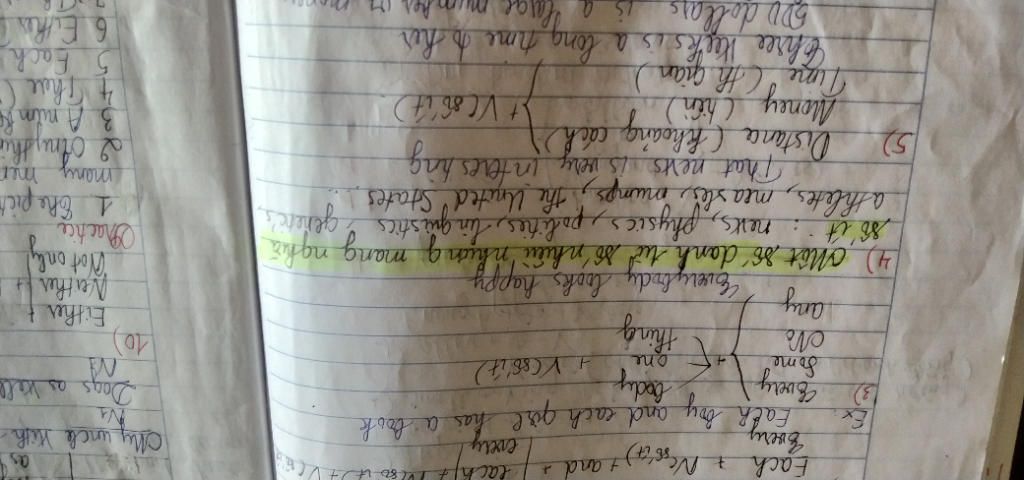 Each + N(số ít) + and + | each | + N(số ít) + V(số ít)
Every | every
Ex: Each boy and each girl has a book
3) Every body
Some + one + V(số ít)
No thing
any
Everybody looks happy
4) Một số danh từ số nhiều nhưng mang nghĩa
số ít : news, physics, politics, linguistics, genetics,
athletes, measles, mumps, the United States ...
That news is very interesting
5) Distance (khoảng cách)
Money (tiền) + V(số ít)
Time (th gian)
Three weeks is a long time to her
500 dollars is a large number of money
My uncle with
N1
Dogs as well
N1
10)
Either +
Neither +
Not only
Practice
1. The pict
many mor
2 Anythin
3 A numb
4 Thue (
5 Each
6 Eithe